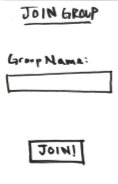 JOIN GROUP
Group Name:
JOIN!